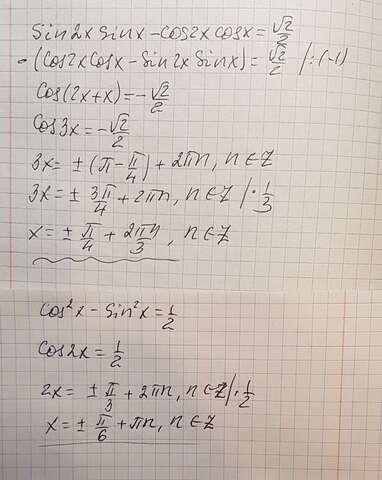 Sin2x Sinx - Cos2x Cosx = √2/2
- (Cos2x Cosx - Sin2x Sinx) = √2/2 /:(-1)
Cos(2x+x) = -√2/2
Cos3x = -√2/2
3x = ± (π - π/4) + 2πn, n ∈ Z
3x = ± 3π/4 + 2πn, n ∈ Z / · 1/3
x = ± π/4 + 2πn/3, n ∈ Z
Cos²x - Sin²x = 1/2
Cos2x = 1/2
2x = ± π/3 + 2πn, n ∈ Z / · 1/2
x = ± π/6 + πn, n ∈ Z